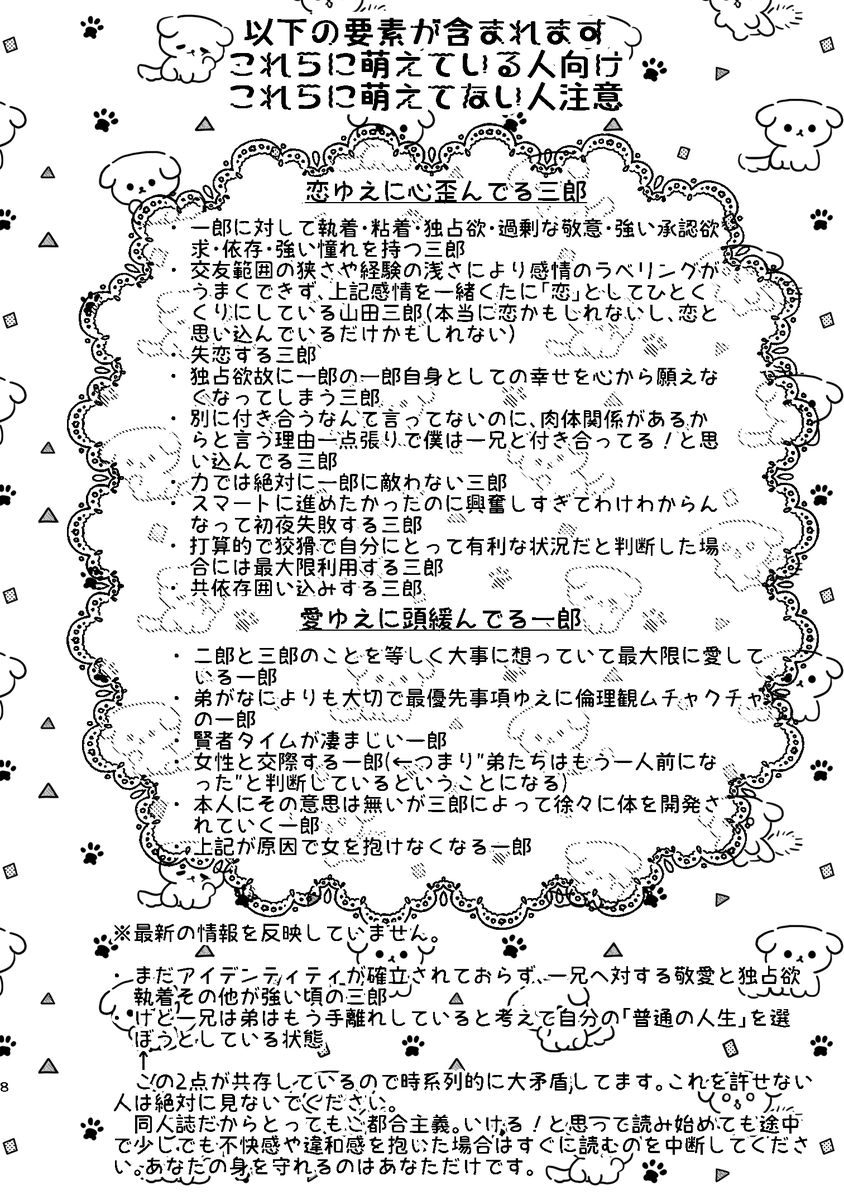 以下の要素が含まれます
これらに萌えている人向け
これらに萌えてない人注意
恋ゆえに心歪んでる三郎
・一郎に対して執着・粘着・独占欲・過剰な敬意・強い承認欲
求・依存・強い憧れを持つ三郎
・交友範囲の狭さや経験の浅さにより感情のラベリングが
うまくできず、上記感情を一緒くたに「恋」としてひとく
くりにしている山田三郎(本当に恋かもしれないし、恋と
思い込んでいるだけかもしれない)
・失恋する三郎
・独占欲故に一郎の一郎自身としての幸せを心から願えな
くなってしまう三郎
・別に付き合うなんて言ってないのに、肉体関係があるか
らと言う理由一点張りで僕は一兄と付き合ってる!と思
い込んでる三郎
・力では絶対に一郎に敵わない三郎
・スマートに進めたかったのに興奮しすぎてわけわからん
なって初夜失敗する三郎
・打算的で狡猾で自分にとって有利な状況だと判断した場
合には最大限利用する三郎
・共依存囲い込みする三郎
愛ゆえに頭緩んでる一郎
・二郎と三郎のことを等しく大事に想っていて最大限に愛して
いる一郎
・弟がなによりも大切で最優先事項ゆえに倫理観ムチャクチャ
の一郎
・賢者タイムが凄まじい一郎
・女性と交際する一郎(←つまり"弟たちはもう一人前にな
った"と判断しているということになる)
・本人にその意思は無いが三郎によって徐々に体を開発さ
れていく一郎
・上記が原因で女を抱けなくなる一郎
※最新の情報を反映していません。
・まだアイデンティティが確立されておらず、一兄へ対する敬愛と独占欲
執着その他が強い頃の三郎
・けど一兄は弟はもう手離れしていると考えて自分の「普通の人生」を選
ぼうとしている状態
↑
この2点が共存しているので時系列的に大矛盾してます。これを許せない
人は絶対に見ないでください。
同人誌だからとってもご都合主義。いける!と思って読み始めても途中
で少しでも不快感や違和感を抱いた場合はすぐに読むのを中断してくださ
い。あなたの身を守れるのはあなただけです。
8